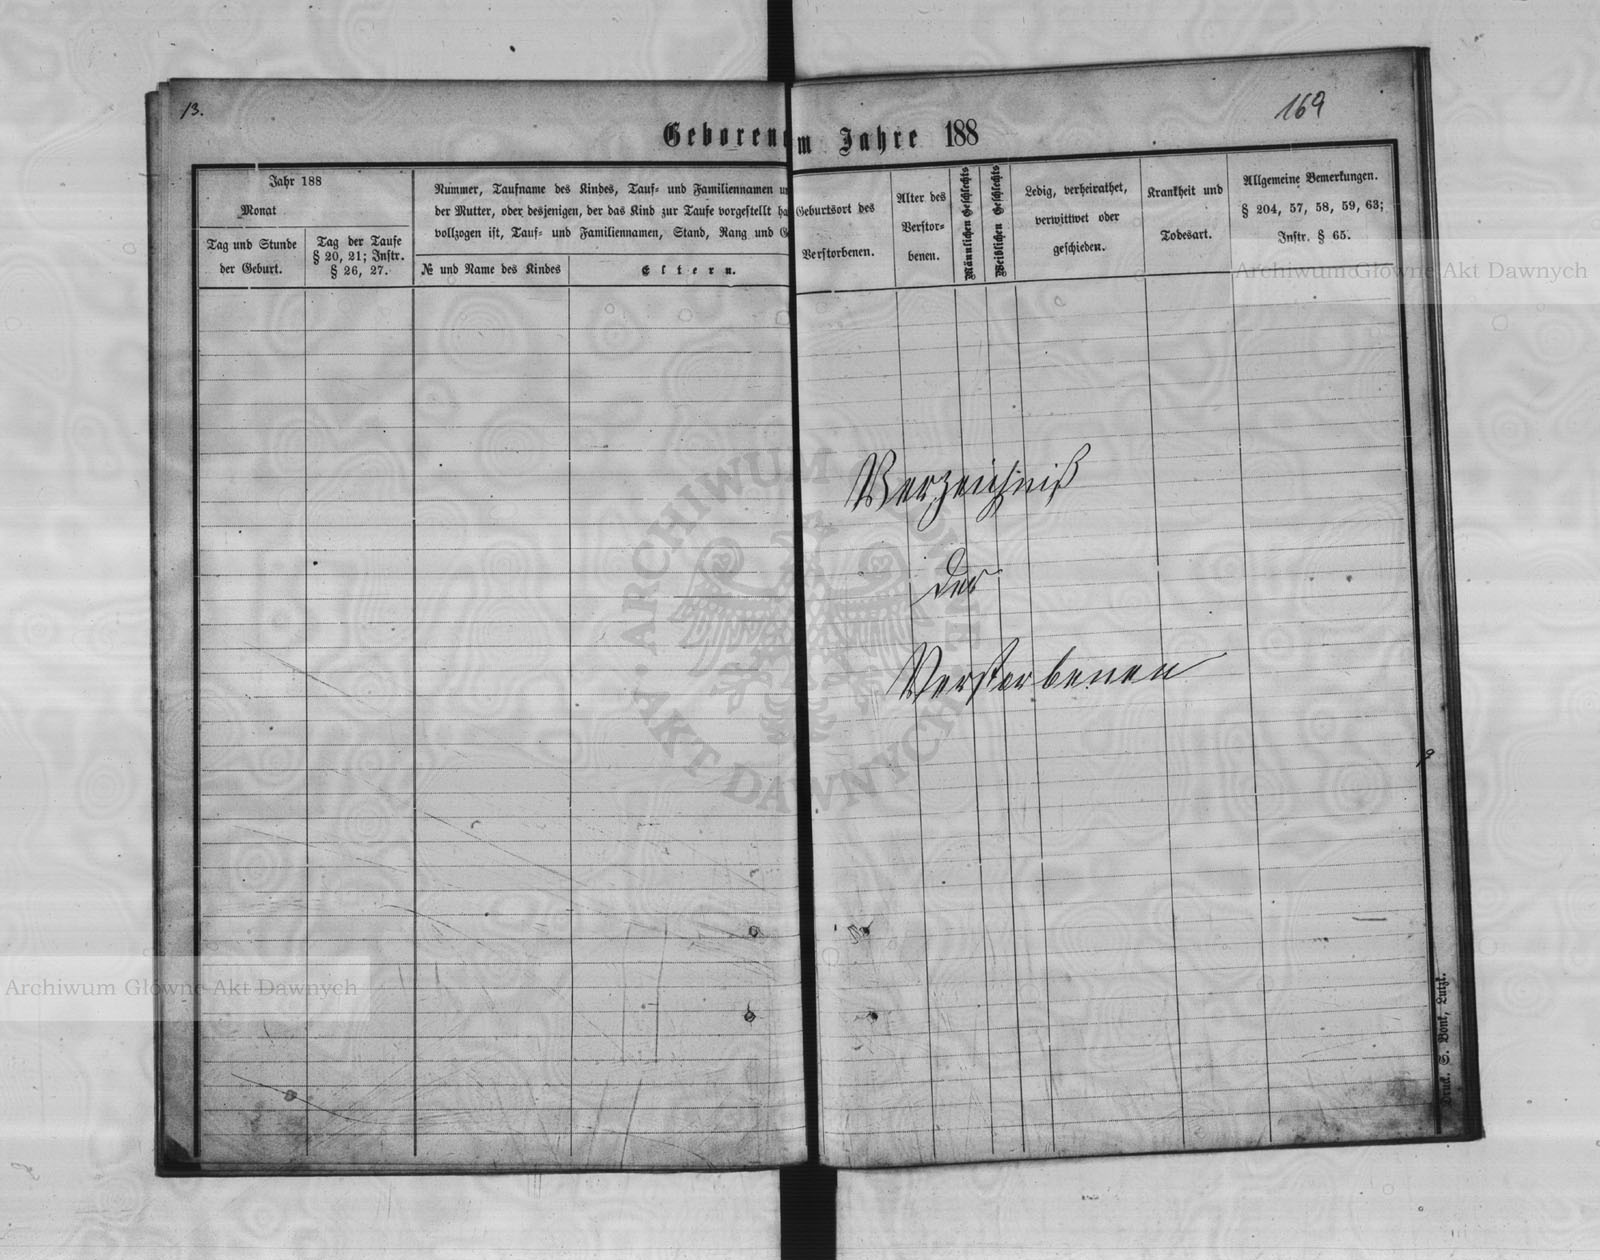 13.
169
Geborene
m Jahre 188
Jahr 188
Monat
Tag und Stunde
der Geburt.
Tag der Taufe
§ 20, 21; Instr.
§ 26, 27.
Nummer, Taufname des Kindes, Tauf- und Familiennamen
der Mutter, oder desjenigen, der das Kind zur Taufe vorgestellt
vollzogen ist, Tauf- und Familiennamen, Stand, Rang und
№ und Name des Kindes
Eltern.
Geburtsort des
Verstorbenen.
Alter des
Verstor-
benen.
Männlichen Geschlechts
Weiblichen Geschlechts
Ledig, verheirathet,
verwittwet oder
geschieden.
Krankheit und
Todesart.
Allgemeine Bemerkungen.
§ 204, 57, 58, 59, 63;
Instr. § 65.
Verzeichniß
der
Verstorbenen
Druck. S. Bonk, Lutzk.
Archiwum Główne Akt Dawnych
Archiwum Główne Akt Dawnych
ARCHIWUM GŁÓWNE
AKT DAWNYCH